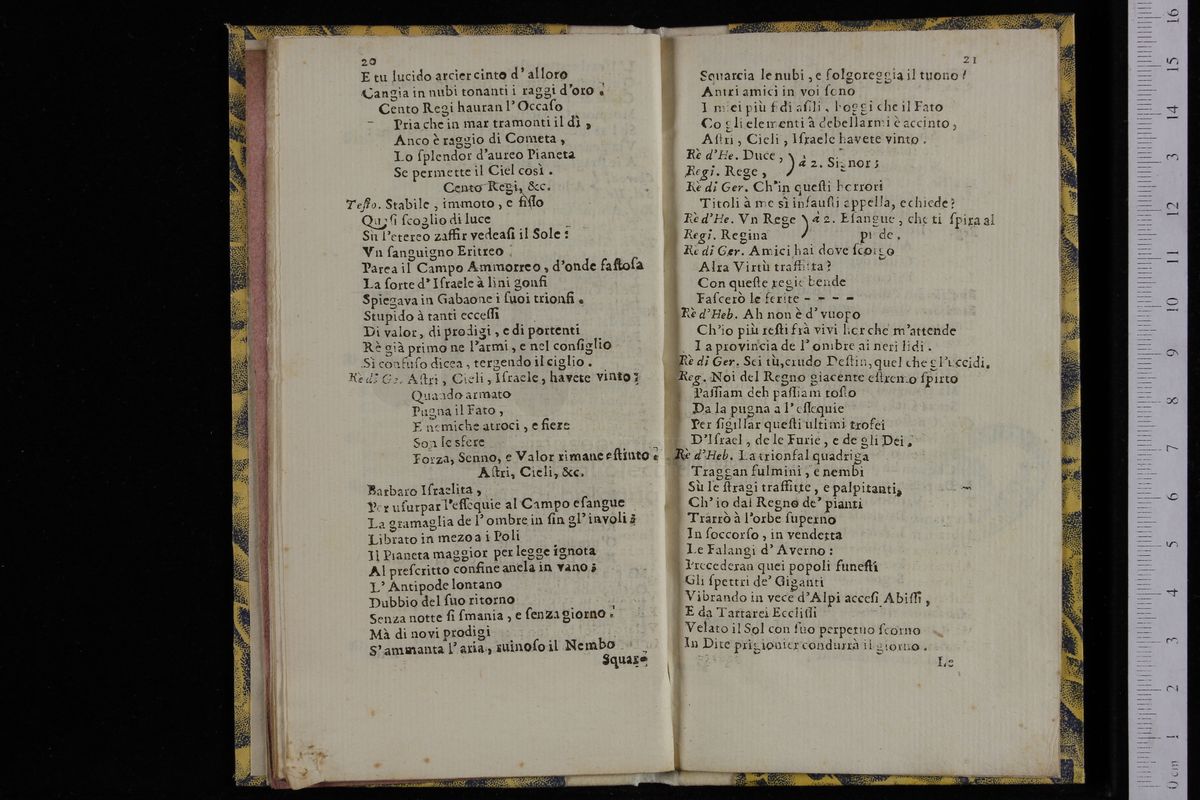 20
E tu lucido arcier cinto d' alloro
Cangia in nubi tonanti i raggi d'oro.
Cento Regi hauran l'Occaſo
Pria che in mar tramonti il dì,
Anco è raggio di Cometa,
Lo ſplendor d'aureo Pianeta
Se permette il Ciel così.
Cento Regi, &c.
Teſto. Stabile, immoto, e fiſſo
Quaſi ſcoglio di luce
Sù l'etereo zaffir vedeaſi il Sole:
Vn ſanguigno Eritreo
Parea il Campo Ammorreo, d'onde faſtoſa
La ſorte d'Iſraele à lini gonfi
Spiegava in Gabaone i ſuoi trionfi.
Stupido à tanti ecceſſi
Di valor, di prodigi, e di portenti
Rè già primo ne l'armi, e nel conſiglio
Sì confuſo dicea, tergendo il ciglio.
Rè di Ge. Aſtri, Cieli, Iſraele, havete vinto;
Quando armato
Pugna il Fato,
E nemiche atroci, e fiere
Son le sfere
Forza, Senno, e Valor rimane eſtinto.
Aſtri, Cieli, &c.
Barbaro Iſraelita,
Per uſurpar l'eſſequie al Campo eſangue
La gramaglia de l'ombre in ſin gl'involi;
Librato in mezo a i Poli
Il Pianeta maggior per legge ignota
Al preſcritto confine anela in vano;
L'Antipode lontano
Dubbio del ſuo ritorno
Senza notte ſi ſmania, e ſenza giorno.
Mà di novi prodigi
S'ammanta l'aria, ruinoſo il Nembo
Squar-
21
Squarcia le nubi, e folgoreggia il tuono!
Antri amici in voi ſono
I miei più fidi aſili, hoggi che il Fato
Co gli elementi à debellarmi è accinto,
Aſtri, Cieli, Iſraele havete vinto.
Rè d'He. Duce, ) à 2. Signor;
Regi. Rege, )
Rè di Ger. Ch'in queſti horrori
Titoli à me sì infauſti appella, e chiede?
Rè d'He. Vn Rege ) à 2. Eſangue, che ti ſpira al
Regi. Regina ) piede.
Rè di Ger. Amici, hai dove ſcorgo
Alta Virtù traffitta?
Con queſte regie bende
Faſcerò le ferite - - - -
Rè d'Heb. Ah non è d'vuopo
Ch'io più reſti frà vivi hor che m'attende
La provincia de l'ombre ai neri lidi.
Rè di Ger. Sei tù, crudo Deſtin, quel che gl'uccidi.
Reg. Noi del Regno giacente eſtremo ſpirto
Paſſiam deh paſſiam toſto
Da la pugna a l'eſſequie
Per ſigillar queſti ultimi trofei
D'Iſrael, de le Furie, e de gli Dei.
Rè d'Heb. La trionfal quadriga
Traggan fulmini, e nembi
Sù le ſtragi traffitte, e palpitanti,
Ch'io dal Regno de' pianti
Trarrò à l'orbe ſuperno
In ſoccorſo, in vendetta
Le Falangi d'Averno:
Precederan quei popoli funeſti
Gli ſpettri de' Giganti
Vibrando in vece d'Alpi acceſi Abiſſi,
E da Tartarei Eccliſſi
Velato il Sol con ſuo perpetuo ſcorno
In Dite prigionier condurrà il giorno.
Le